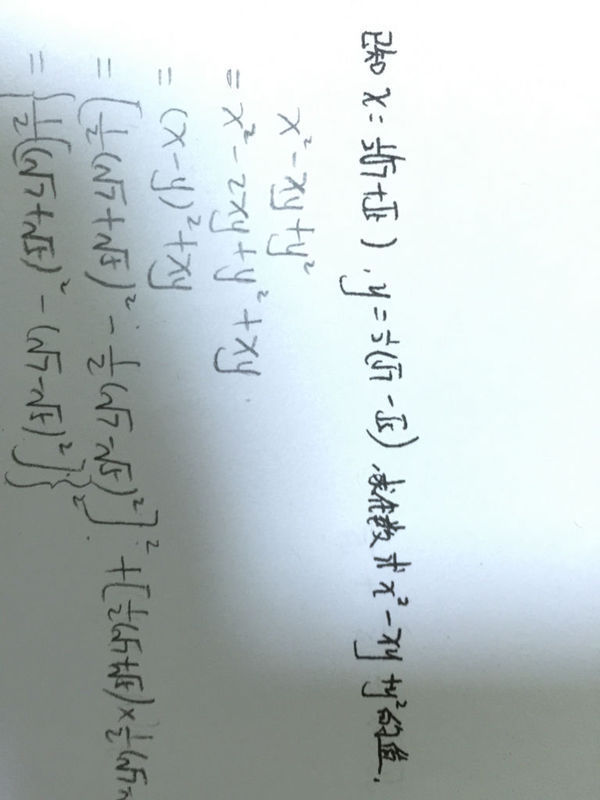 已知 x=½(√7+√5), y=½(√7-√5), 求代数式x²-xy+y²的值.
x²-xy+y²
= x²-2xy+y²+xy
= (x-y)²+xy
= [½(√7+√5)²-½(√7-√5)²]²+[½(√7+√5)×½(√7-
= {½[(√7+√5)²-(√7-√5)²]}²